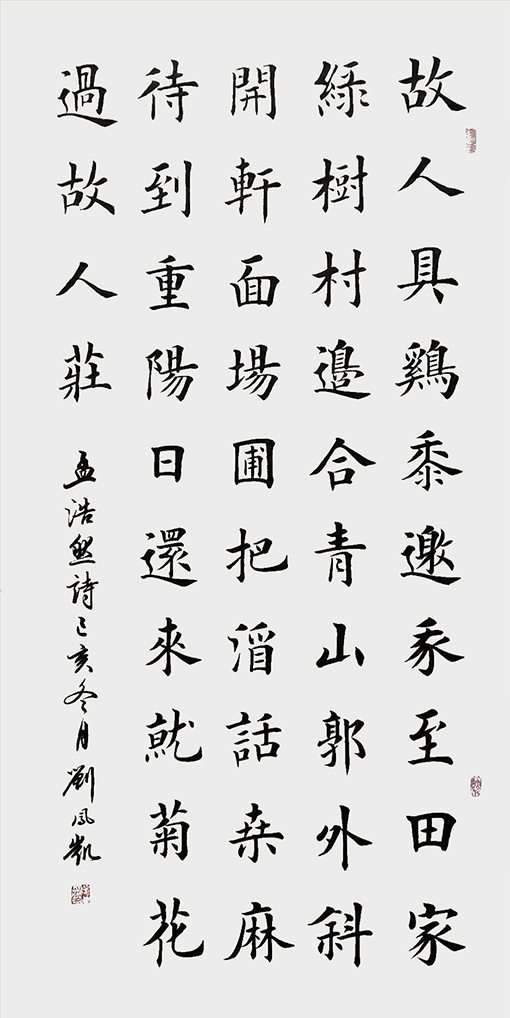 故人具鷄黍邀我至田家
綠樹村邊合青山郭外斜
開軒面場圃把酒話桑麻
待到重陽日還來就菊花
過故人莊
孟浩然詩己亥冬月劉鳳凱